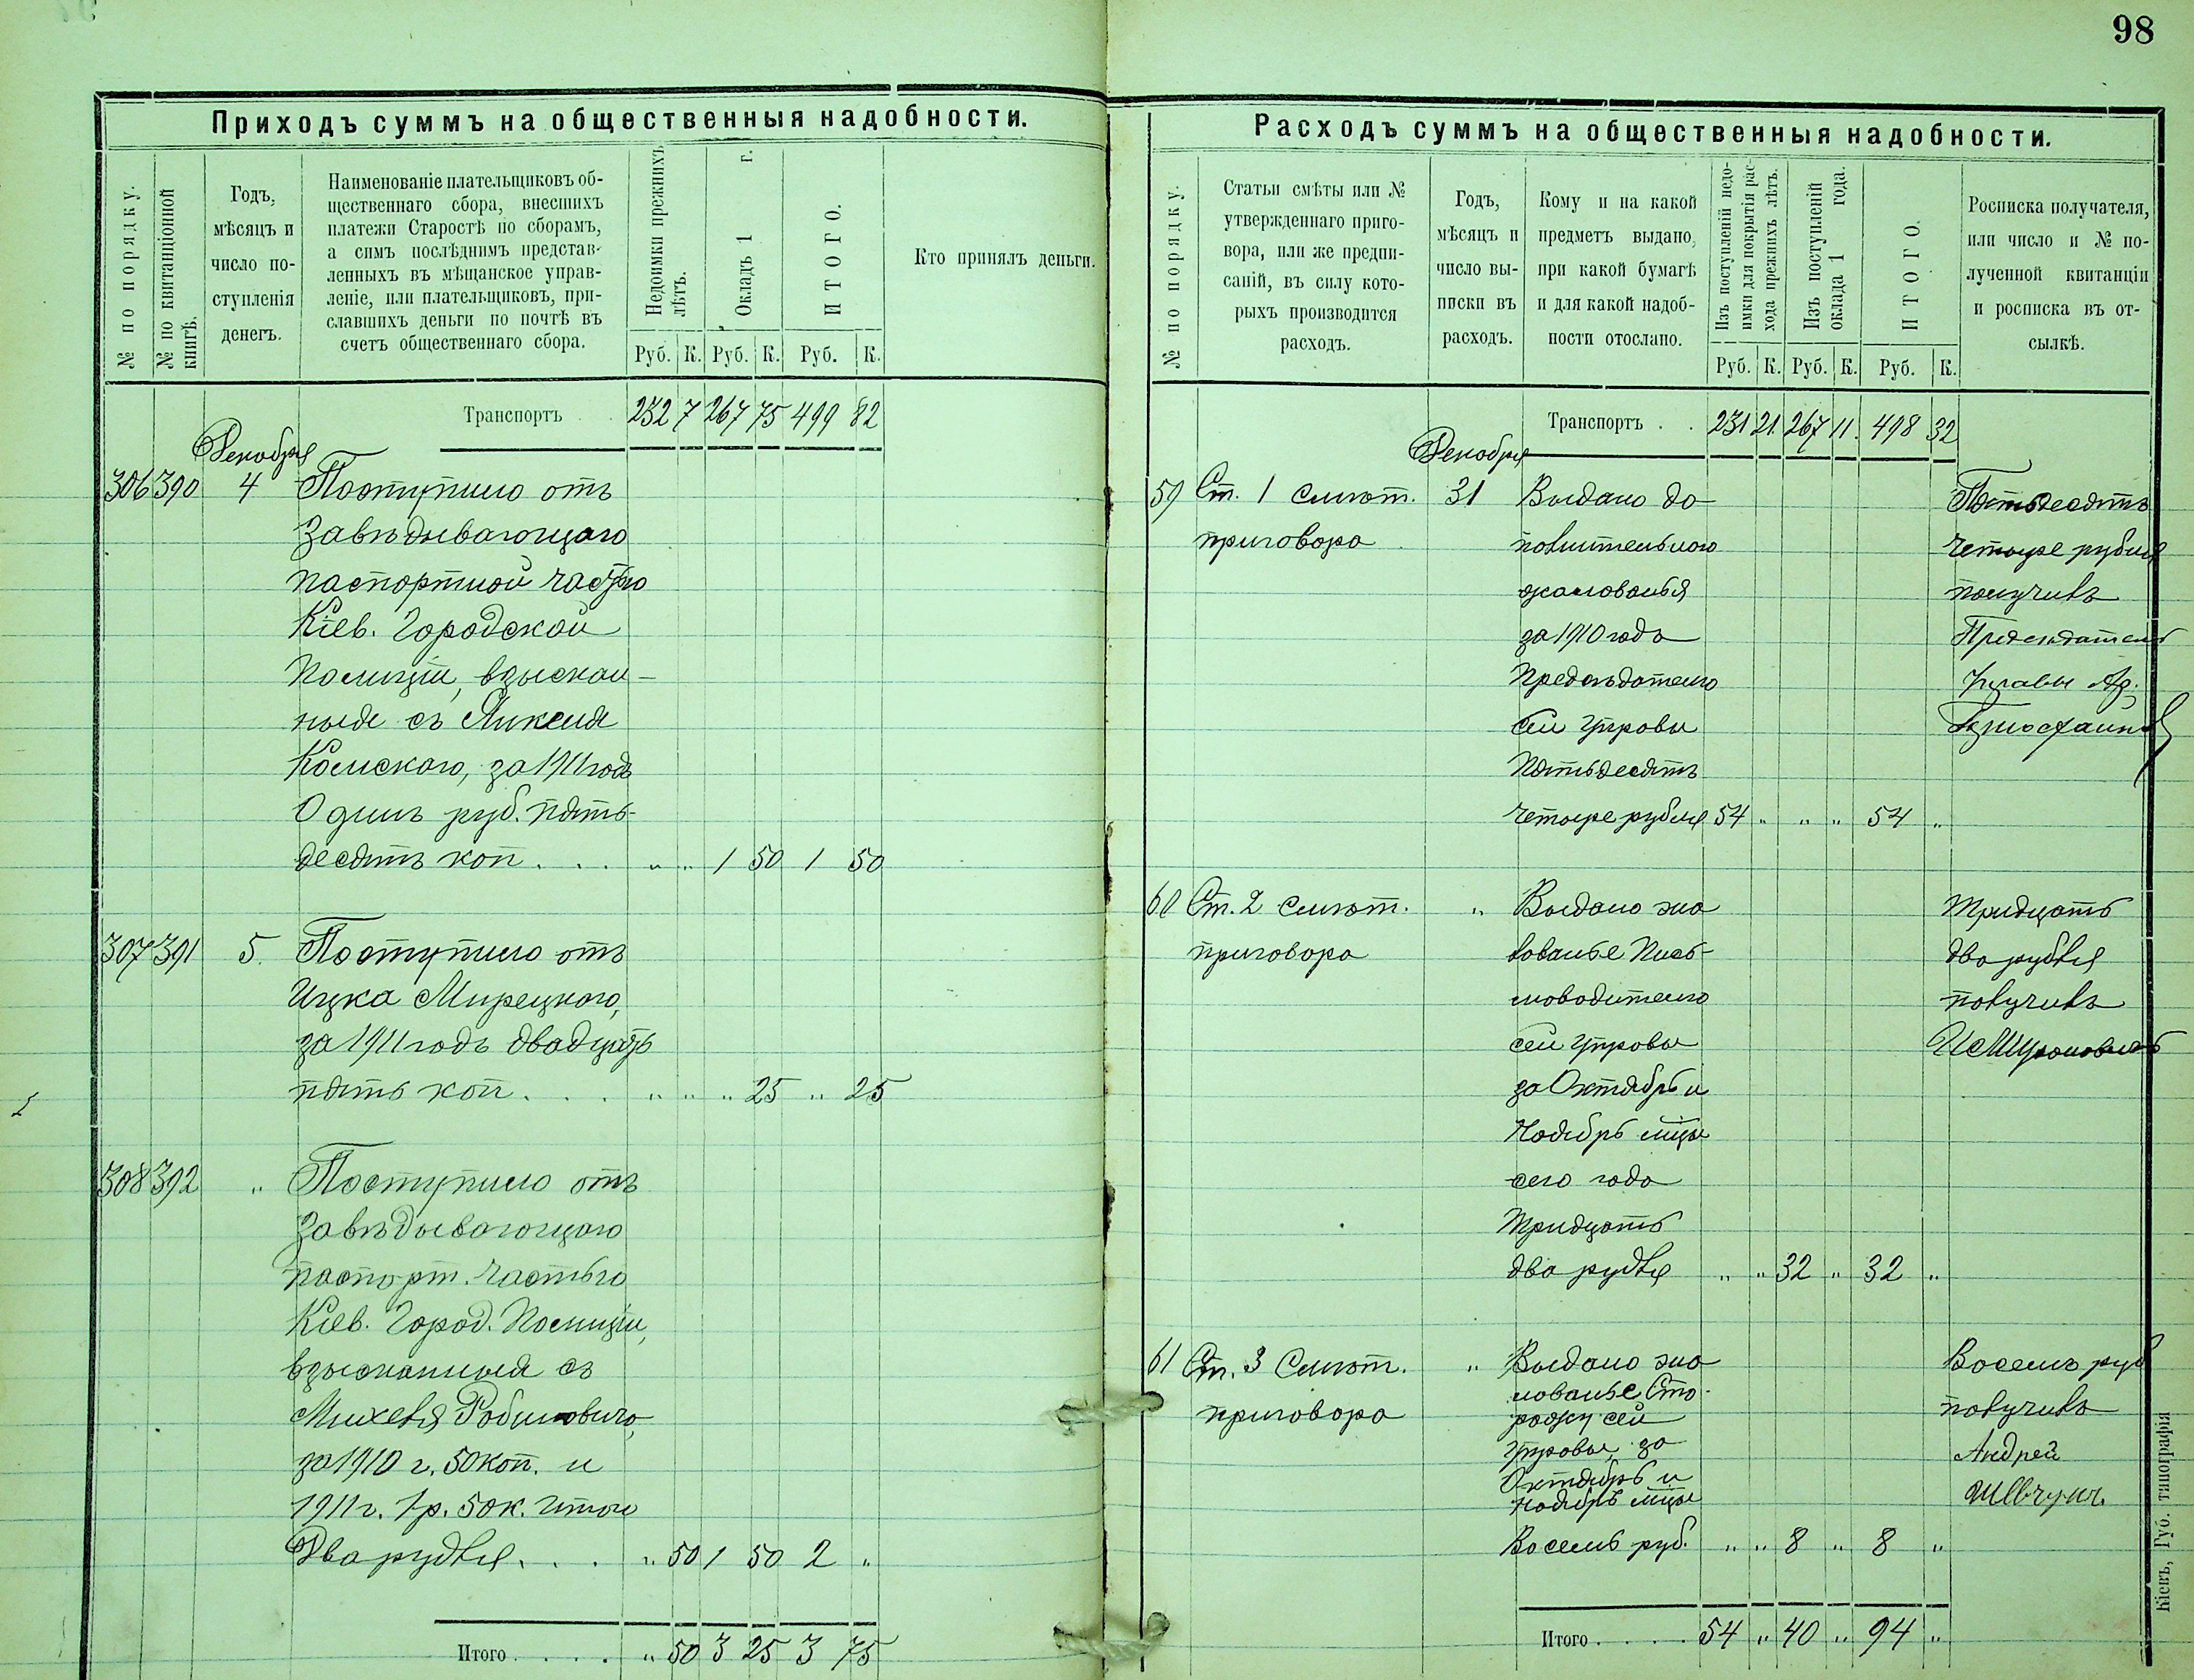 98
Приходъ суммъ на общественныя надобности.
№ по порядку.
№ по квитанціонной книгѣ.
Годъ,
мѣсяцъ и
число по-
ступленія
денегъ.
Наименованіе плательщиковъ об-
щественнаго сбора, внесшихъ
платежи Старостѣ по сборамъ,
а симъ послѣднимъ представ-
ленныхъ въ мѣщанское управ-
леніе, или плательщиковъ, при-
славшихъ деньги по почтѣ въ
счетъ общественнаго сбора.
Недоимки прежнихъ
лѣтъ.
Окладъ 1 г.
ИТОГО.
Кто принялъ деньги.
Руб. К. Руб. К. Руб. К.
Транспортъ 232 7 267 75 499 82
Декабря
306 390 4 Поступило отъ
Завѣдывающаго
паспортной частью
Кіев. Городской
Полиціи, взыскан-
ныя съ
за 1911 годъ
Одинъ руб. пять-
десятъ коп. . . . „ „ 1 50 1 50
307 391 5. Поступило отъ
Ицка Мирецкаго,
за 1911 годъ двадцать
пять коп. . . . „ „ „ 25 „ 25
308 392 „ Поступило отъ
Завѣдывающаго
паспорт. частью
Кіев. Город. Полиціи,
взысканныя съ
Михеля Рабиновича,
за 1910 г. 50 коп. и
1911 г. 1 р. 50 к. итого
Два рубля. . . . „ 50 1 50 2 „
Итого . . . . „ 50 3 25 3 75
Расходъ суммъ на общественныя надобности.
№ по порядку.
Статьи смѣты или №
утвержденнаго приго-
вора, или же предпи-
саній, въ силу кото-
рыхъ производится
расходъ.
Годъ,
мѣсяцъ и
число вы-
писки въ
расходъ.
Кому и на какой
предметъ выдано,
при какой бумагѣ
и для какой надоб-
ности отослано.
Изъ поступленій недо-
имки для покрытія рас-
хода прежнихъ лѣтъ.
Изъ поступленій
оклада 1 года.
ИТОГО.
Росписка получателя,
или число и № по-
лученной квитанціи
и росписка въ от-
сылкѣ.
Руб. К. Руб. К. Руб. К.
Транспортъ . . 231 21. 267 11. 498 32
Декабря
59 Ст. 1 смѣт. 31 Выдано до- Пятьдесятъ
приговора полнительного четыре рубля
жалованья получилъ
за 1910 года Предсѣдатель
Предсѣдателю Управы
сей Управы
Пятьдесятъ
четыре рубля 54 „ „ „ 54 „
60 Ст. 2 смѣт. „ Выдано жа- Тридцать
приговора лованье Пись- два рубля
моводителю получилъ
сей Управы
за Октябрь и
Ноябрь мцы
сего года
Тридцать
два рубля „ „ 32 „ 32 „
61 Ст. 3 Смѣт. „ Выдано жа- Восемь руб
лованье Сто-
приговора рожу сей получилъ
Управы, за Андрей
Октябрь и
Ноябрь мцы
Восемь руб. „ „ 8 „ 8 „
Итого . . . . 54 „ 40 „ 94 „
Кіевъ, Губ. типографія